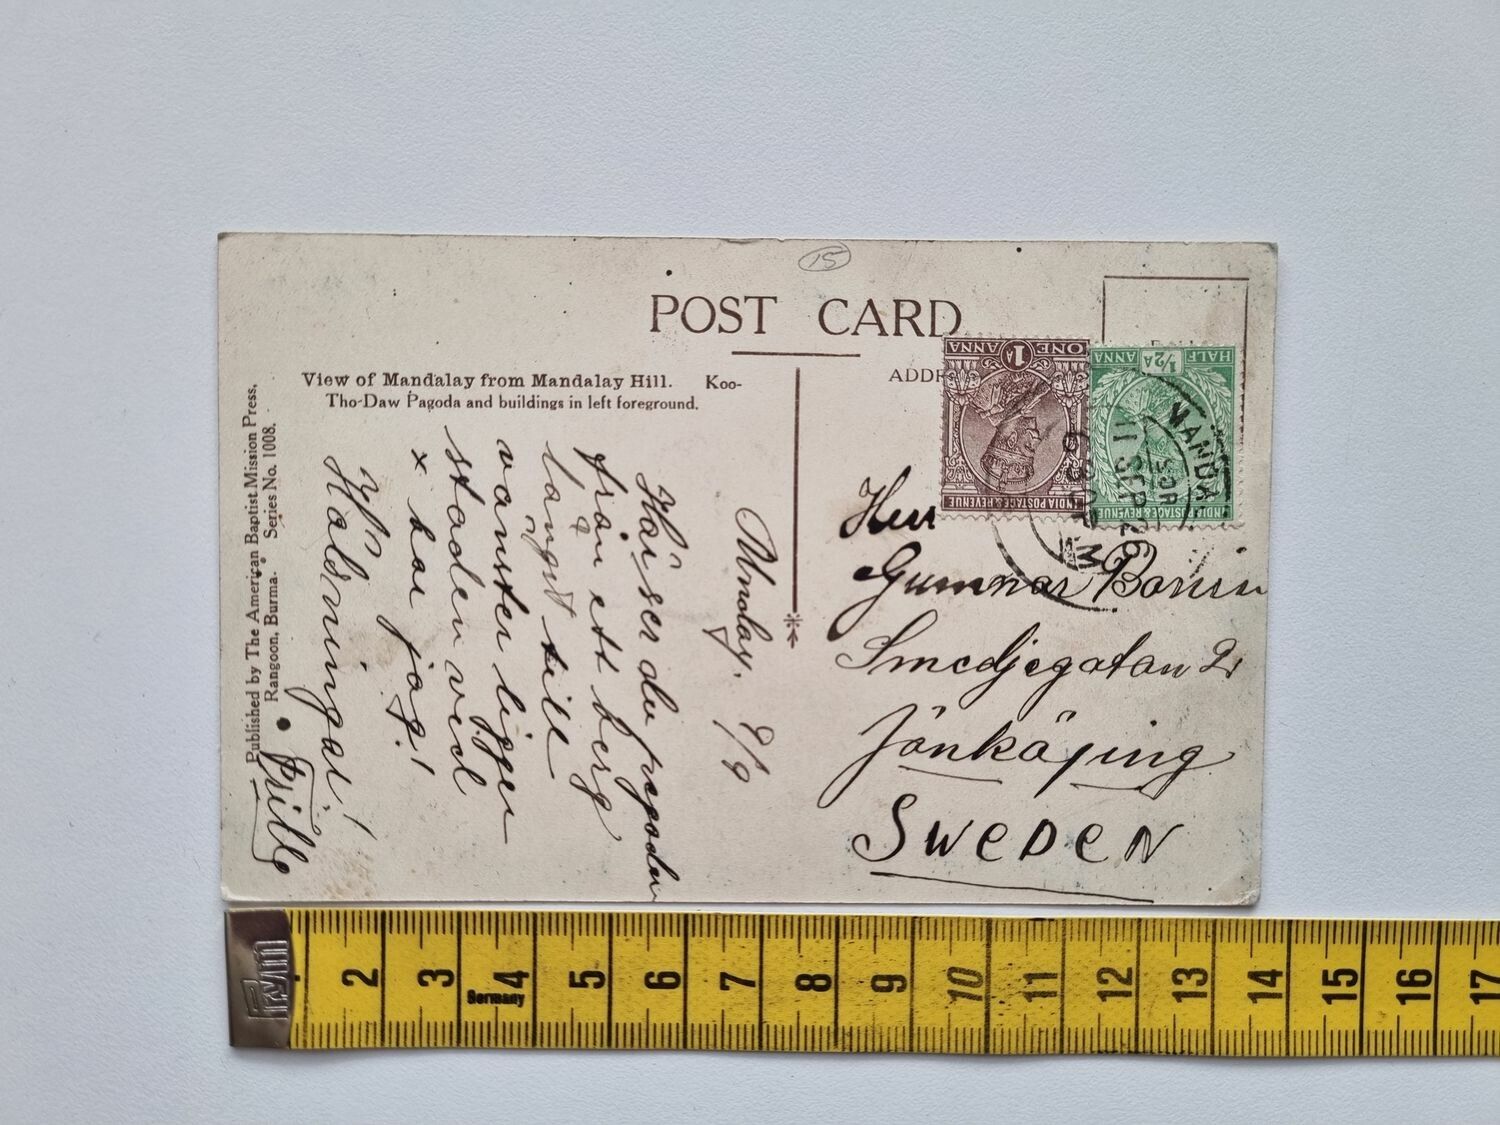 15
POST CARD
View of Mandalay from Mandalay Hill. Koo-
Tho-Daw Pagoda and buildings in left foreground.
Published by The American Baptist Mission Press,
Rangoon, Burma. Series No. 1008.
9/9
Här ser du pagoder
från ett berg
långt till
vänster ligger
staden vid
x bor jag!
Hälsningar!
ADDR
ONE 1A ANNA
INDIA POSTAGE & REVENUE
HALF ½A ANNA
INDIA POSTAGE & REVENUE
MANDA
11 SEP 26
Herr
Gunnar
Smedjegatan 21
Jönköping
SWEDEN
Prym
2 3 4 5 6 7 8 9 10 11 12 13 14 15 16 17
Germany